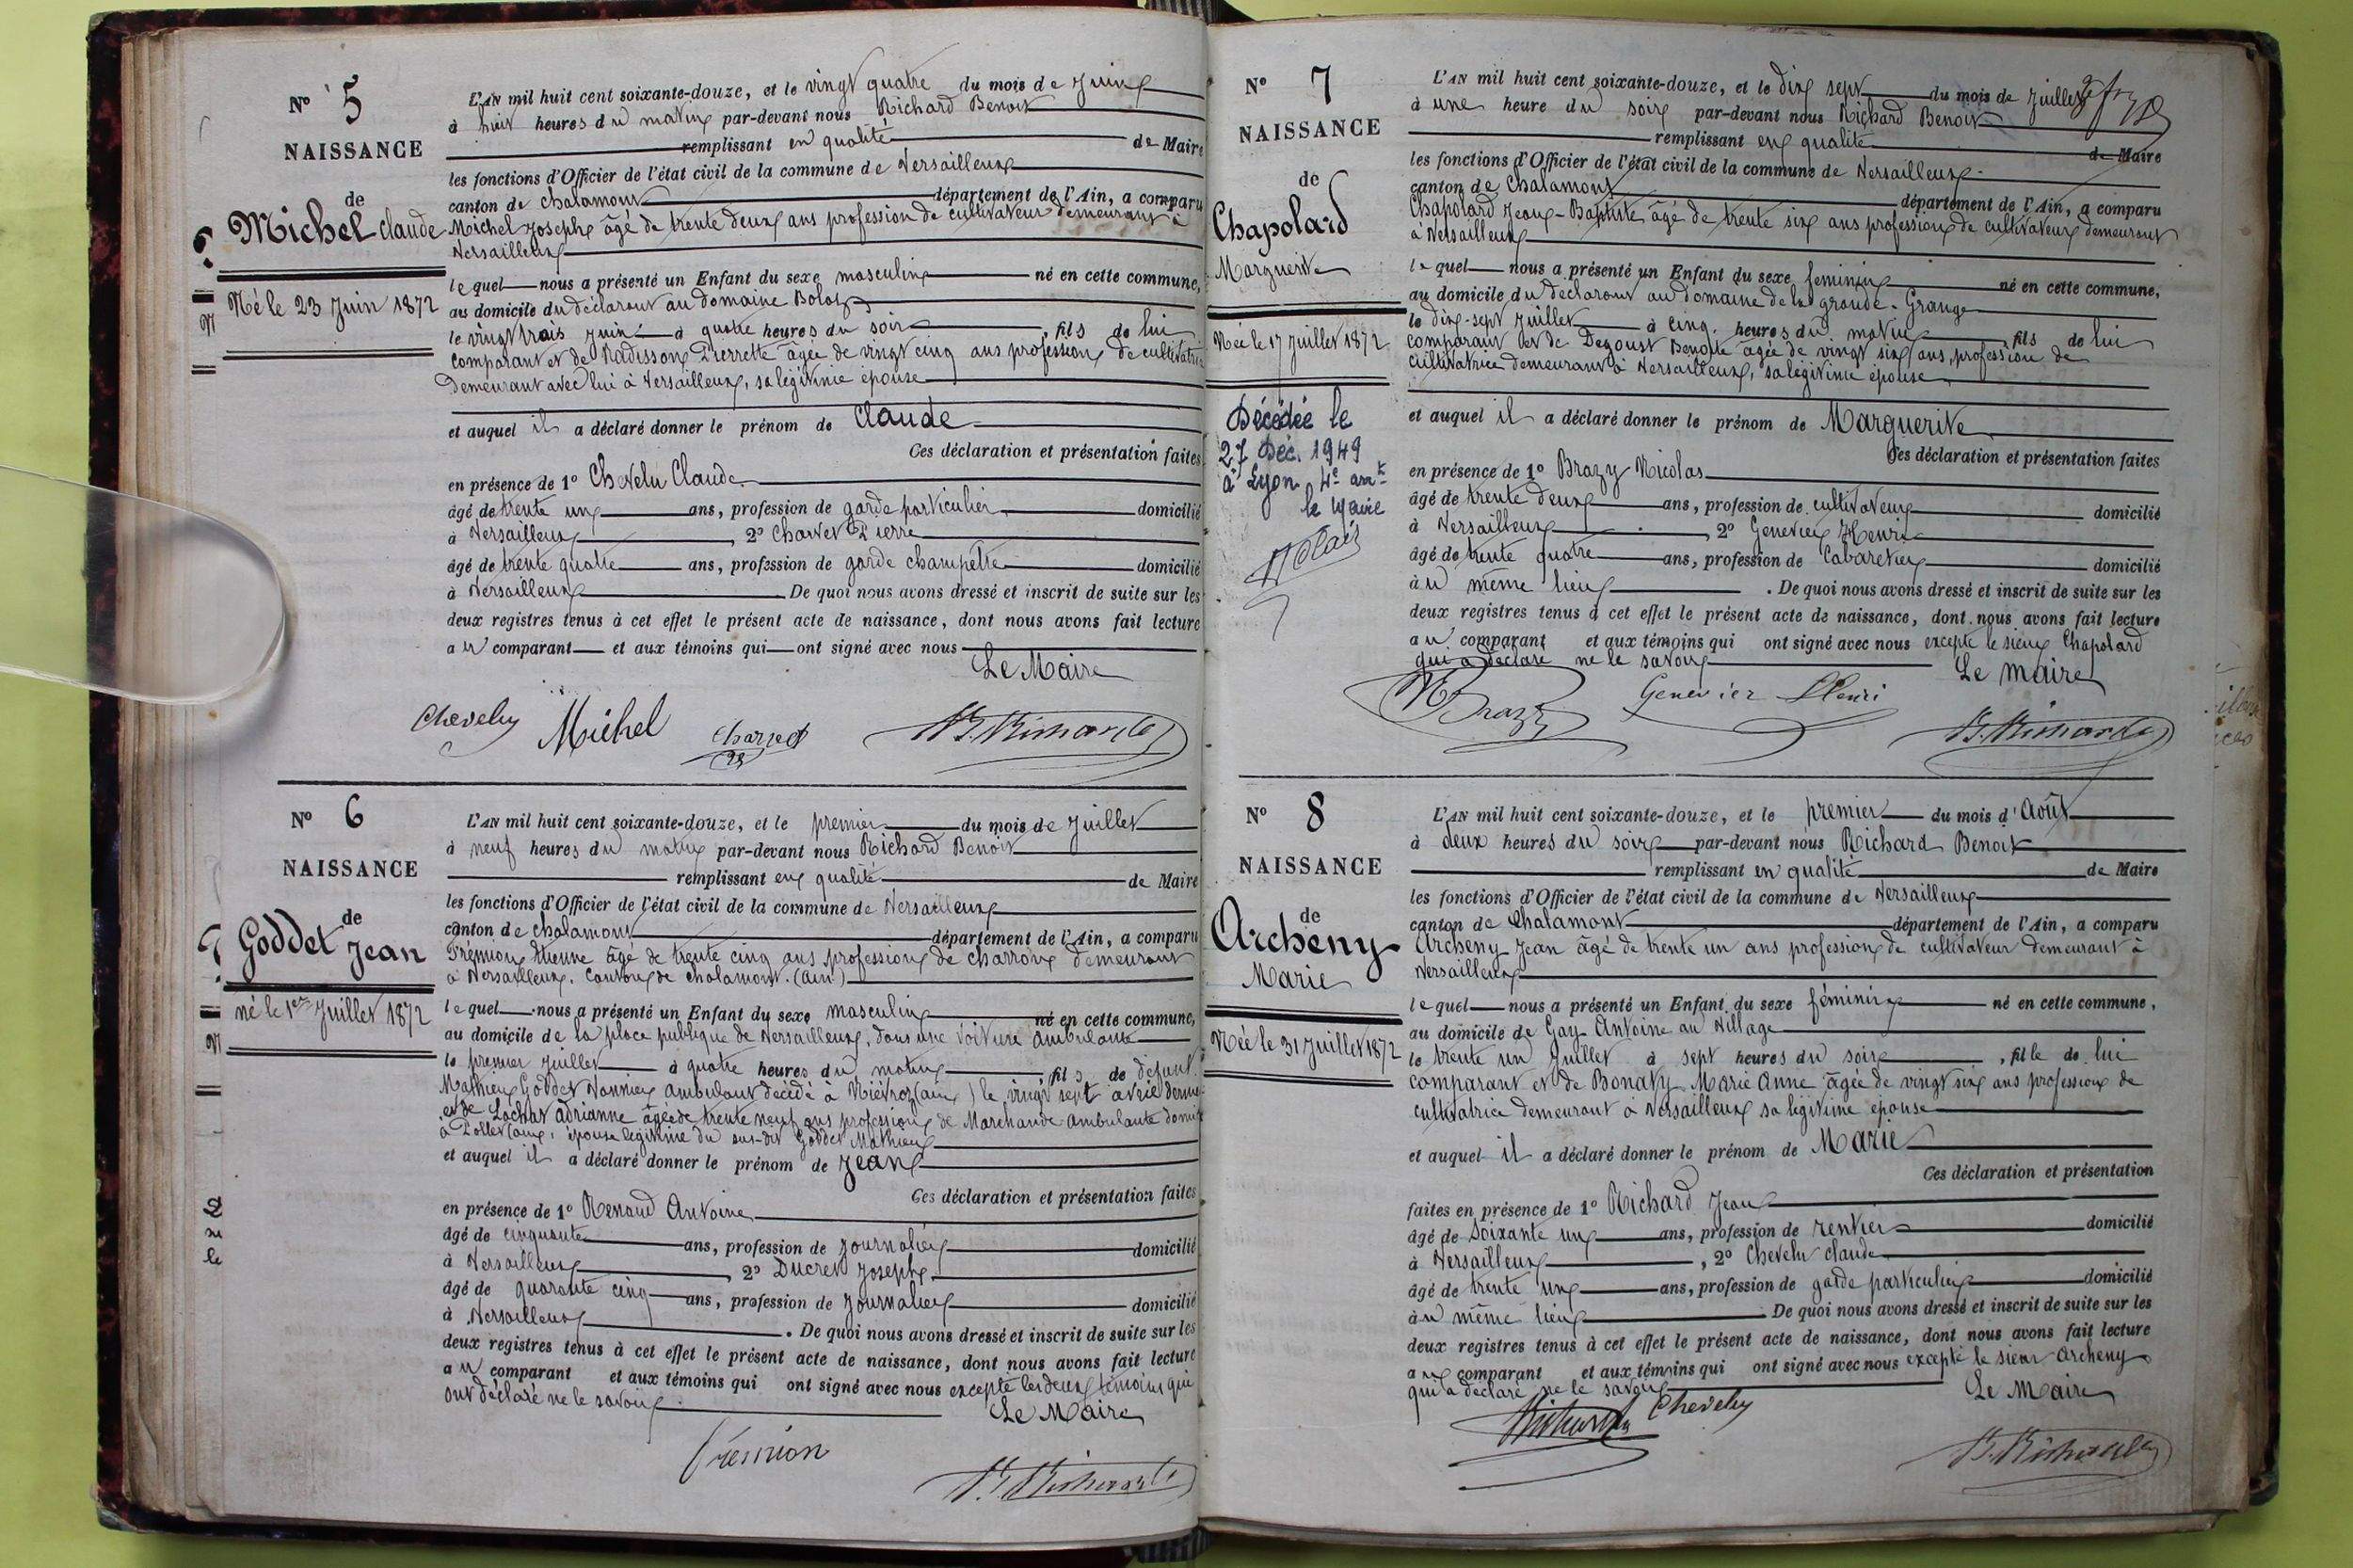 N° 5
NAISSANCE
de
Michel Claude
Né le 23 Juin 1872
L'AN mil huit cent soixante-douze, et le vingt quatre du mois de Juin
à huit heures du matin par-devant nous Richard Benoit
remplissant en qualité de Maire
les fonctions d'Officier de l'état civil de la commune de Versailleux
canton de Chalamont département de l'Ain, a comparu
Michel Joseph âgé de trente deux ans profession de cultivateur demeurant à
Versailleux
lequel nous a présenté un Enfant du sexe masculin né en cette commune,
au domicile du déclarant au domaine
le vingt trois Juin à quatre heures du soir, fils de lui
comparant et de Radisson Pierrette âgée de vingt cinq ans profession de cultivatrice
demeurant avec lui à Versailleux, sa légitime épouse
et auquel il a déclaré donner le prénom de Claude
Ces déclaration et présentation faites
en présence de 1° Chevelu Claude
âgé de trente un ans, profession de garde particulier domicilié
à Versailleux, 2° Charvet Pierre
âgé de trente quatre ans, profession de garde champêtre domicilié
à Versailleux De quoi nous avons dressé et inscrit de suite sur les
deux registres tenus à cet effet le présent acte de naissance, dont nous avons fait lecture
au comparant et aux témoins qui ont signé avec nous
Le Maire
Chevelu Michel Charvet B. Richard
N° 6
NAISSANCE
de
Goddet Jean
né le 1er Juillet 1872
L'AN mil huit cent soixante-douze, et le premier du mois de Juillet
à neuf heures du matin par-devant nous Richard Benoit
remplissant en qualité de Maire
les fonctions d'Officier de l'état civil de la commune de Versailleux
canton de Chalamont département de l'Ain, a comparu
Frémion Etienne âgé de trente cinq ans profession de charron demeurant
à Versailleux, Canton de Chalamont (Ain)
lequel nous a présenté un Enfant du sexe masculin né en cette commune,
au domicile de la place publique de Versailleux, dans une voiture ambulante
le premier Juillet à quatre heures du matin, fils de défunt
Mathieu Goddet Vannier ambulant décédé à Niévroz (ain) le vingt sept avril dernier
et de Lachat adrianne âgée de trente neuf ans profession de Marchande ambulante
épouse légitime du sus-dit Goddet Mathieu
et auquel il a déclaré donner le prénom de Jean
Ces déclaration et présentation faites
en présence de 1° Renaud Antoine
âgé de cinquante ans, profession de Journalier domicilié
à Versailleux, 2° Ducret Joseph
âgé de quarante cinq ans, profession de Journalier domicilié
à Versailleux. De quoi nous avons dressé et inscrit de suite sur les
deux registres tenus à cet effet le présent acte de naissance, dont nous avons fait lecture
au comparant et aux témoins qui ont signé avec nous excepté les deux témoins qui
ont déclaré ne le savoir.
Le Maire
Fremion B. Richard
N° 7
NAISSANCE
de
Chapolard
Marguerite
Née le 17 Juillet 1872
Décédée le
27 Déc. 1949
à Lyon 4e arrt
le Maire
L'AN mil huit cent soixante-douze, et le dix sept du mois de Juillet
à une heure du soir par-devant nous Richard Benoit
remplissant en qualité de Maire
les fonctions d'Officier de l'état civil de la commune de Versailleux
canton de Chalamont département de l'Ain, a comparu
Chapolard Jean-Baptiste âgé de trente six ans profession de cultivateur demeurant
à Versailleux
lequel nous a présenté un Enfant du sexe feminin né en cette commune,
au domicile du déclarant au domaine de la grande-Grange
le dix-sept Juillet à cinq heures du matin, fils de lui
comparant et de Degoust Benoite âgée de vingt six ans, profession de
cultivatrice demeurant à Versailleux, sa légitime épouse
et auquel il a déclaré donner le prénom de Marguerite
Ces déclaration et présentation faites
en présence de 1° Brazy Nicolas
âgé de trente deux ans, profession de cultivateur domicilié
à Versailleux, 2° Genevier Henri
âgé de trente quatre ans, profession de Cabaretier domicilié
au même lieu. De quoi nous avons dressé et inscrit de suite sur les
deux registres tenus à cet effet le présent acte de naissance, dont nous avons fait lecture
au comparant et aux témoins qui ont signé avec nous excepté le sieur Chapolard
qui a déclaré ne le savoir
Le Maire
N Brazy Genevier Henri B. Richard
N° 8
NAISSANCE
de
Archeny
Marie
Née le 31 Juillet 1872
L'AN mil huit cent soixante-douze, et le premier du mois d'Août
à deux heures du soir par-devant nous Richard Benoit
remplissant en qualité de Maire
les fonctions d'Officier de l'état civil de la commune de Versailleux
canton de Chalamont département de l'Ain, a comparu
Archeny Jean âgé de trente un ans profession de cultivateur demeurant à
Versailleux
lequel nous a présenté un Enfant du sexe féminin né en cette commune,
au domicile de Gay Antoine au Village
le trente un Juillet à sept heures du soir, fille de lui
comparant et de Bonaty Marie Anne âgée de vingt six ans profession de
cultivatrice demeurant à Versailleux sa légitime épouse
et auquel il a déclaré donner le prénom de Marie
Ces déclaration et présentation
faites en présence de 1° Richard Jean
âgé de Soixante un ans, profession de rentier domicilié
à Versailleux, 2° Chevelu Claude
âgé de trente un ans, profession de garde particulier domicilié
au même lieu De quoi nous avons dressé et inscrit de suite sur les
deux registres tenus à cet effet le présent acte de naissance, dont nous avons fait lecture
au comparant et aux témoins qui ont signé avec nous excepté le sieur Archeny
qui a déclaré ne le savoir
Le Maire
Richard Chevelu B. Richard